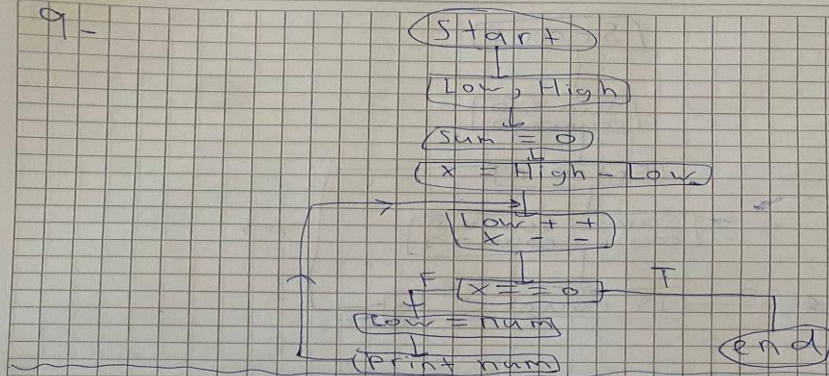 9-
Start
Low, High
sum = 0
x = High - Low
Low + +
x - -
F
x = = 0
T
Low = num
end
print num